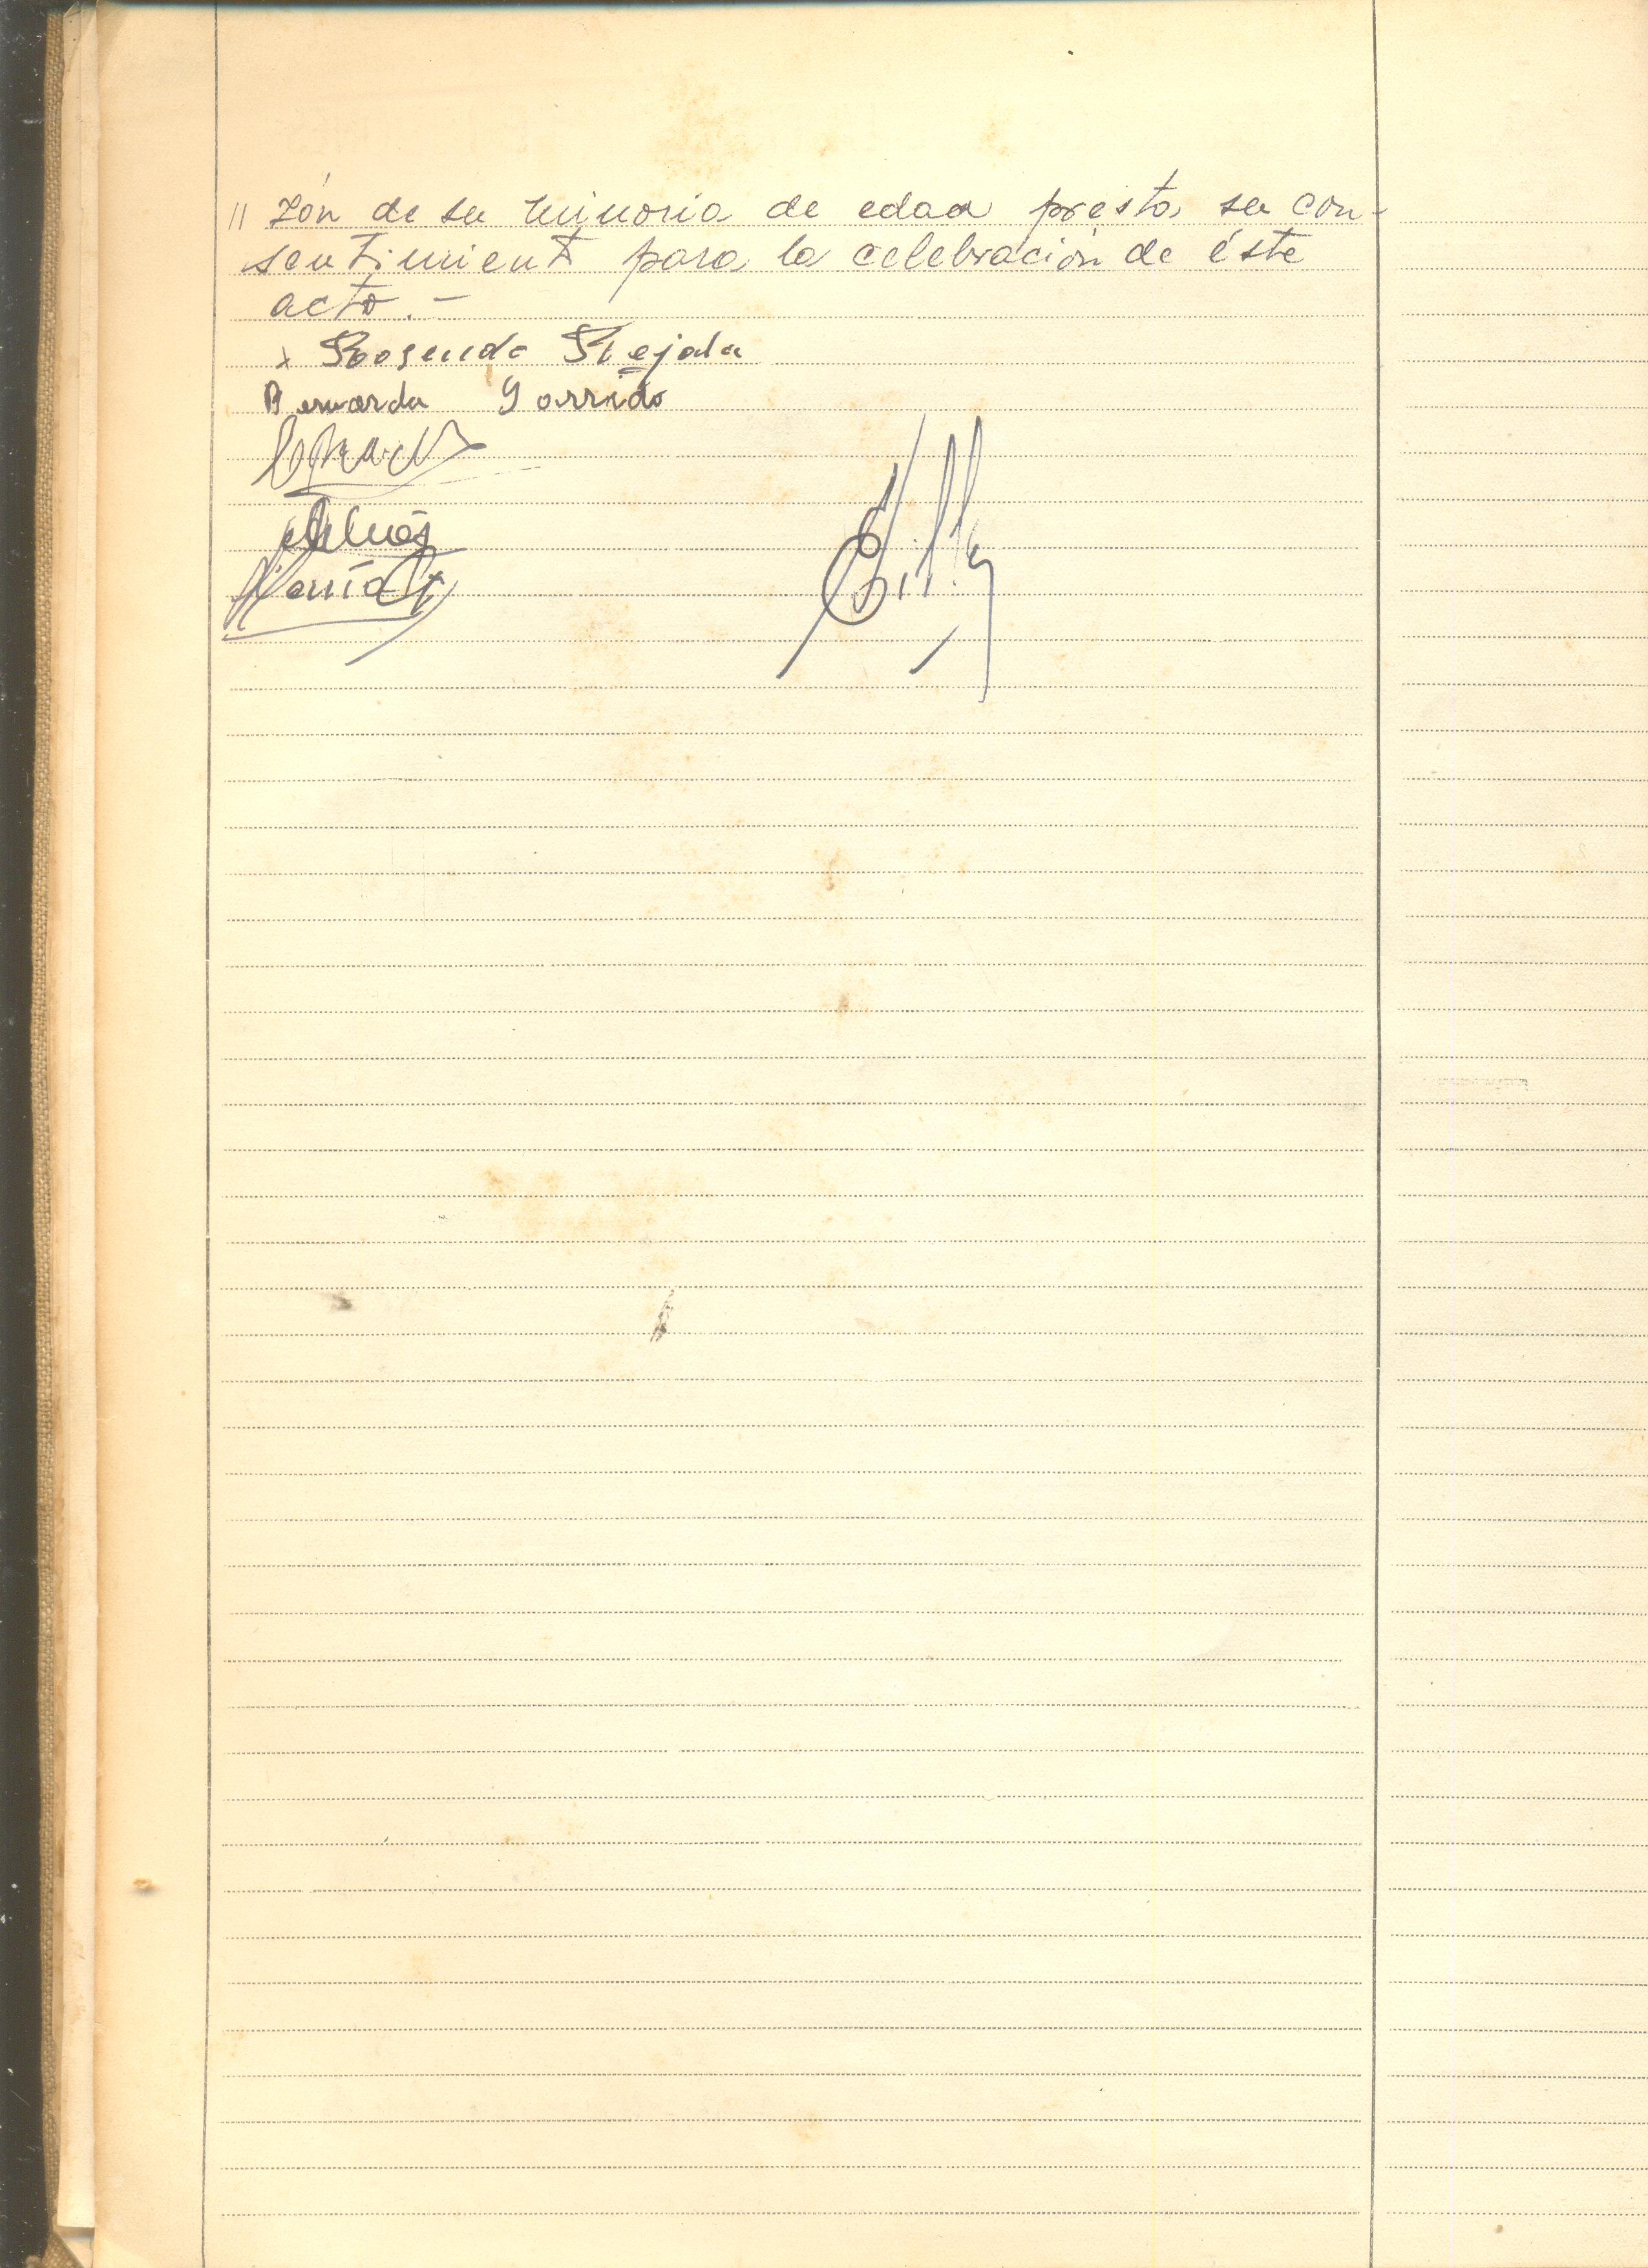 // zón de su minoria de edad presta su con-
sentimient para la celebración de éste
acto. -
x Rosenda Rejala
Bernarda Garrido